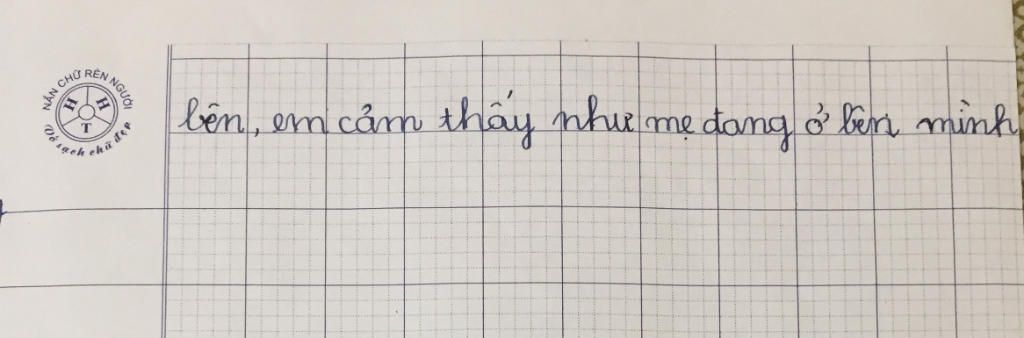 NẮN CHỮ RÈN NGƯỜI
H H
T
Vở sạch chữ đẹp
bên, em cảm thấy như mẹ đang ở bên mình